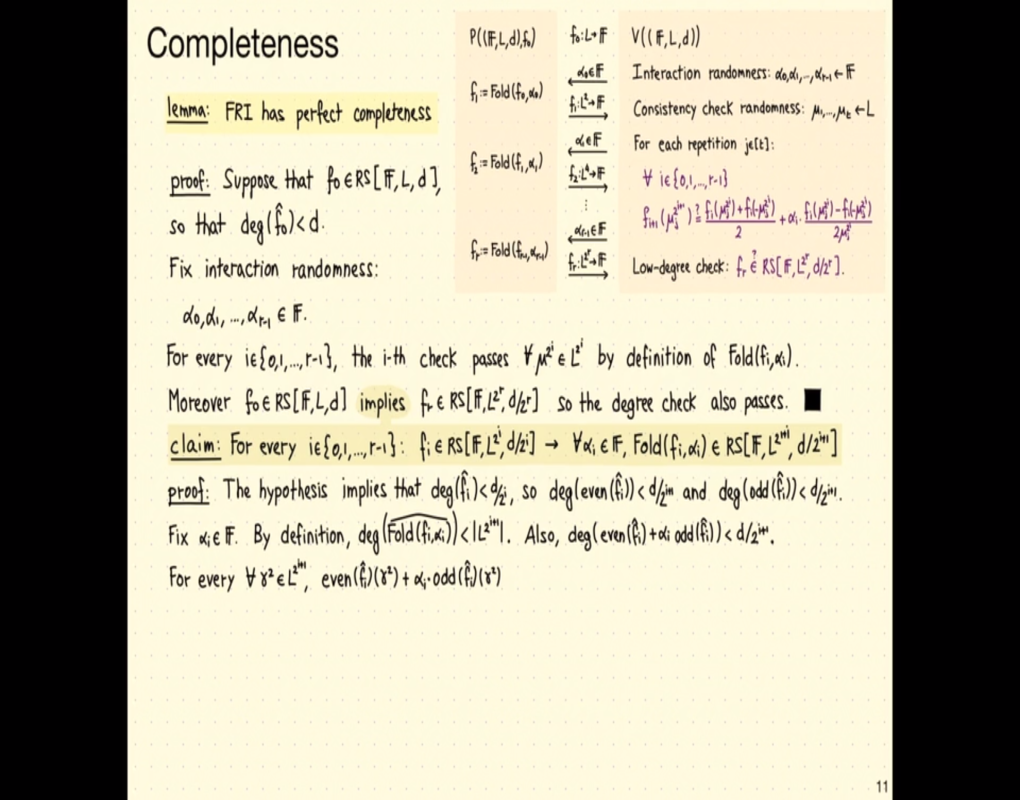 Completeness
P((𝔽,L,d),f₀)
f₀:L→𝔽
V((𝔽,L,d))
α₀∈𝔽
Interaction randomness: α₀,α₁,...,αᵣ₋₁←𝔽
f₁:=Fold(f₀,α₀)
f₁:L²→𝔽
Consistency check randomness: μ₁,...,μₜ←L
α₁∈𝔽
For each repetition j∈[t]:
f₂:=Fold(f₁,α₁)
f₂:L⁴→𝔽
∀ i∈{0,1,...,r-1}
⋮
fᵢ₊₁(μⱼ^{2^{i+1}}) ≟ (fᵢ(μⱼ^{2^i})+fᵢ(-μⱼ^{2^i}))/2 + αᵢ·(fᵢ(μⱼ^{2^i})-fᵢ(-μⱼ^{2^i}))/(2μⱼ^{2^i})
αᵣ₋₁∈𝔽
fᵣ:=Fold(fᵣ₋₁,αᵣ₋₁)
fᵣ:L^{2^r}→𝔽
Low-degree check: fᵣ ∈? RS[𝔽,L^{2^r},d/2^r].
lemma: FRI has perfect completeness
proof: Suppose that f₀∈RS[𝔽,L,d],
so that deg(f̂₀)<d.
Fix interaction randomness:
α₀,α₁,...,αᵣ₋₁ ∈ 𝔽.
For every i∈{0,1,...,r-1}, the i-th check passes ∀ μ^{2^i}∈L^{2^i} by definition of Fold(fᵢ,αᵢ).
Moreover f₀∈RS[𝔽,L,d] implies fᵣ∈RS[𝔽,L^{2^r},d/2^r] so the degree check also passes. ■
claim: For every i∈{0,1,...,r-1}: fᵢ∈RS[𝔽,L^{2^i},d/2^i] → ∀αᵢ∈𝔽, Fold(fᵢ,αᵢ)∈RS[𝔽,L^{2^{i+1}},d/2^{i+1}]
proof: The hypothesis implies that deg(f̂ᵢ)<d/2^i, so deg(even(f̂ᵢ))<d/2^{i+1} and deg(odd(f̂ᵢ))<d/2^{i+1}.
Fix αᵢ∈𝔽. By definition, deg(Fold(fᵢ,αᵢ)^)<|L^{2^{i+1}}|. Also, deg(even(f̂ᵢ)+αᵢ odd(f̂ᵢ))<d/2^{i+1}.
For every ∀ γ²∈L^{2^{i+1}}, even(f̂ᵢ)(γ²)+αᵢ·odd(f̂ᵢ)(γ²)
11